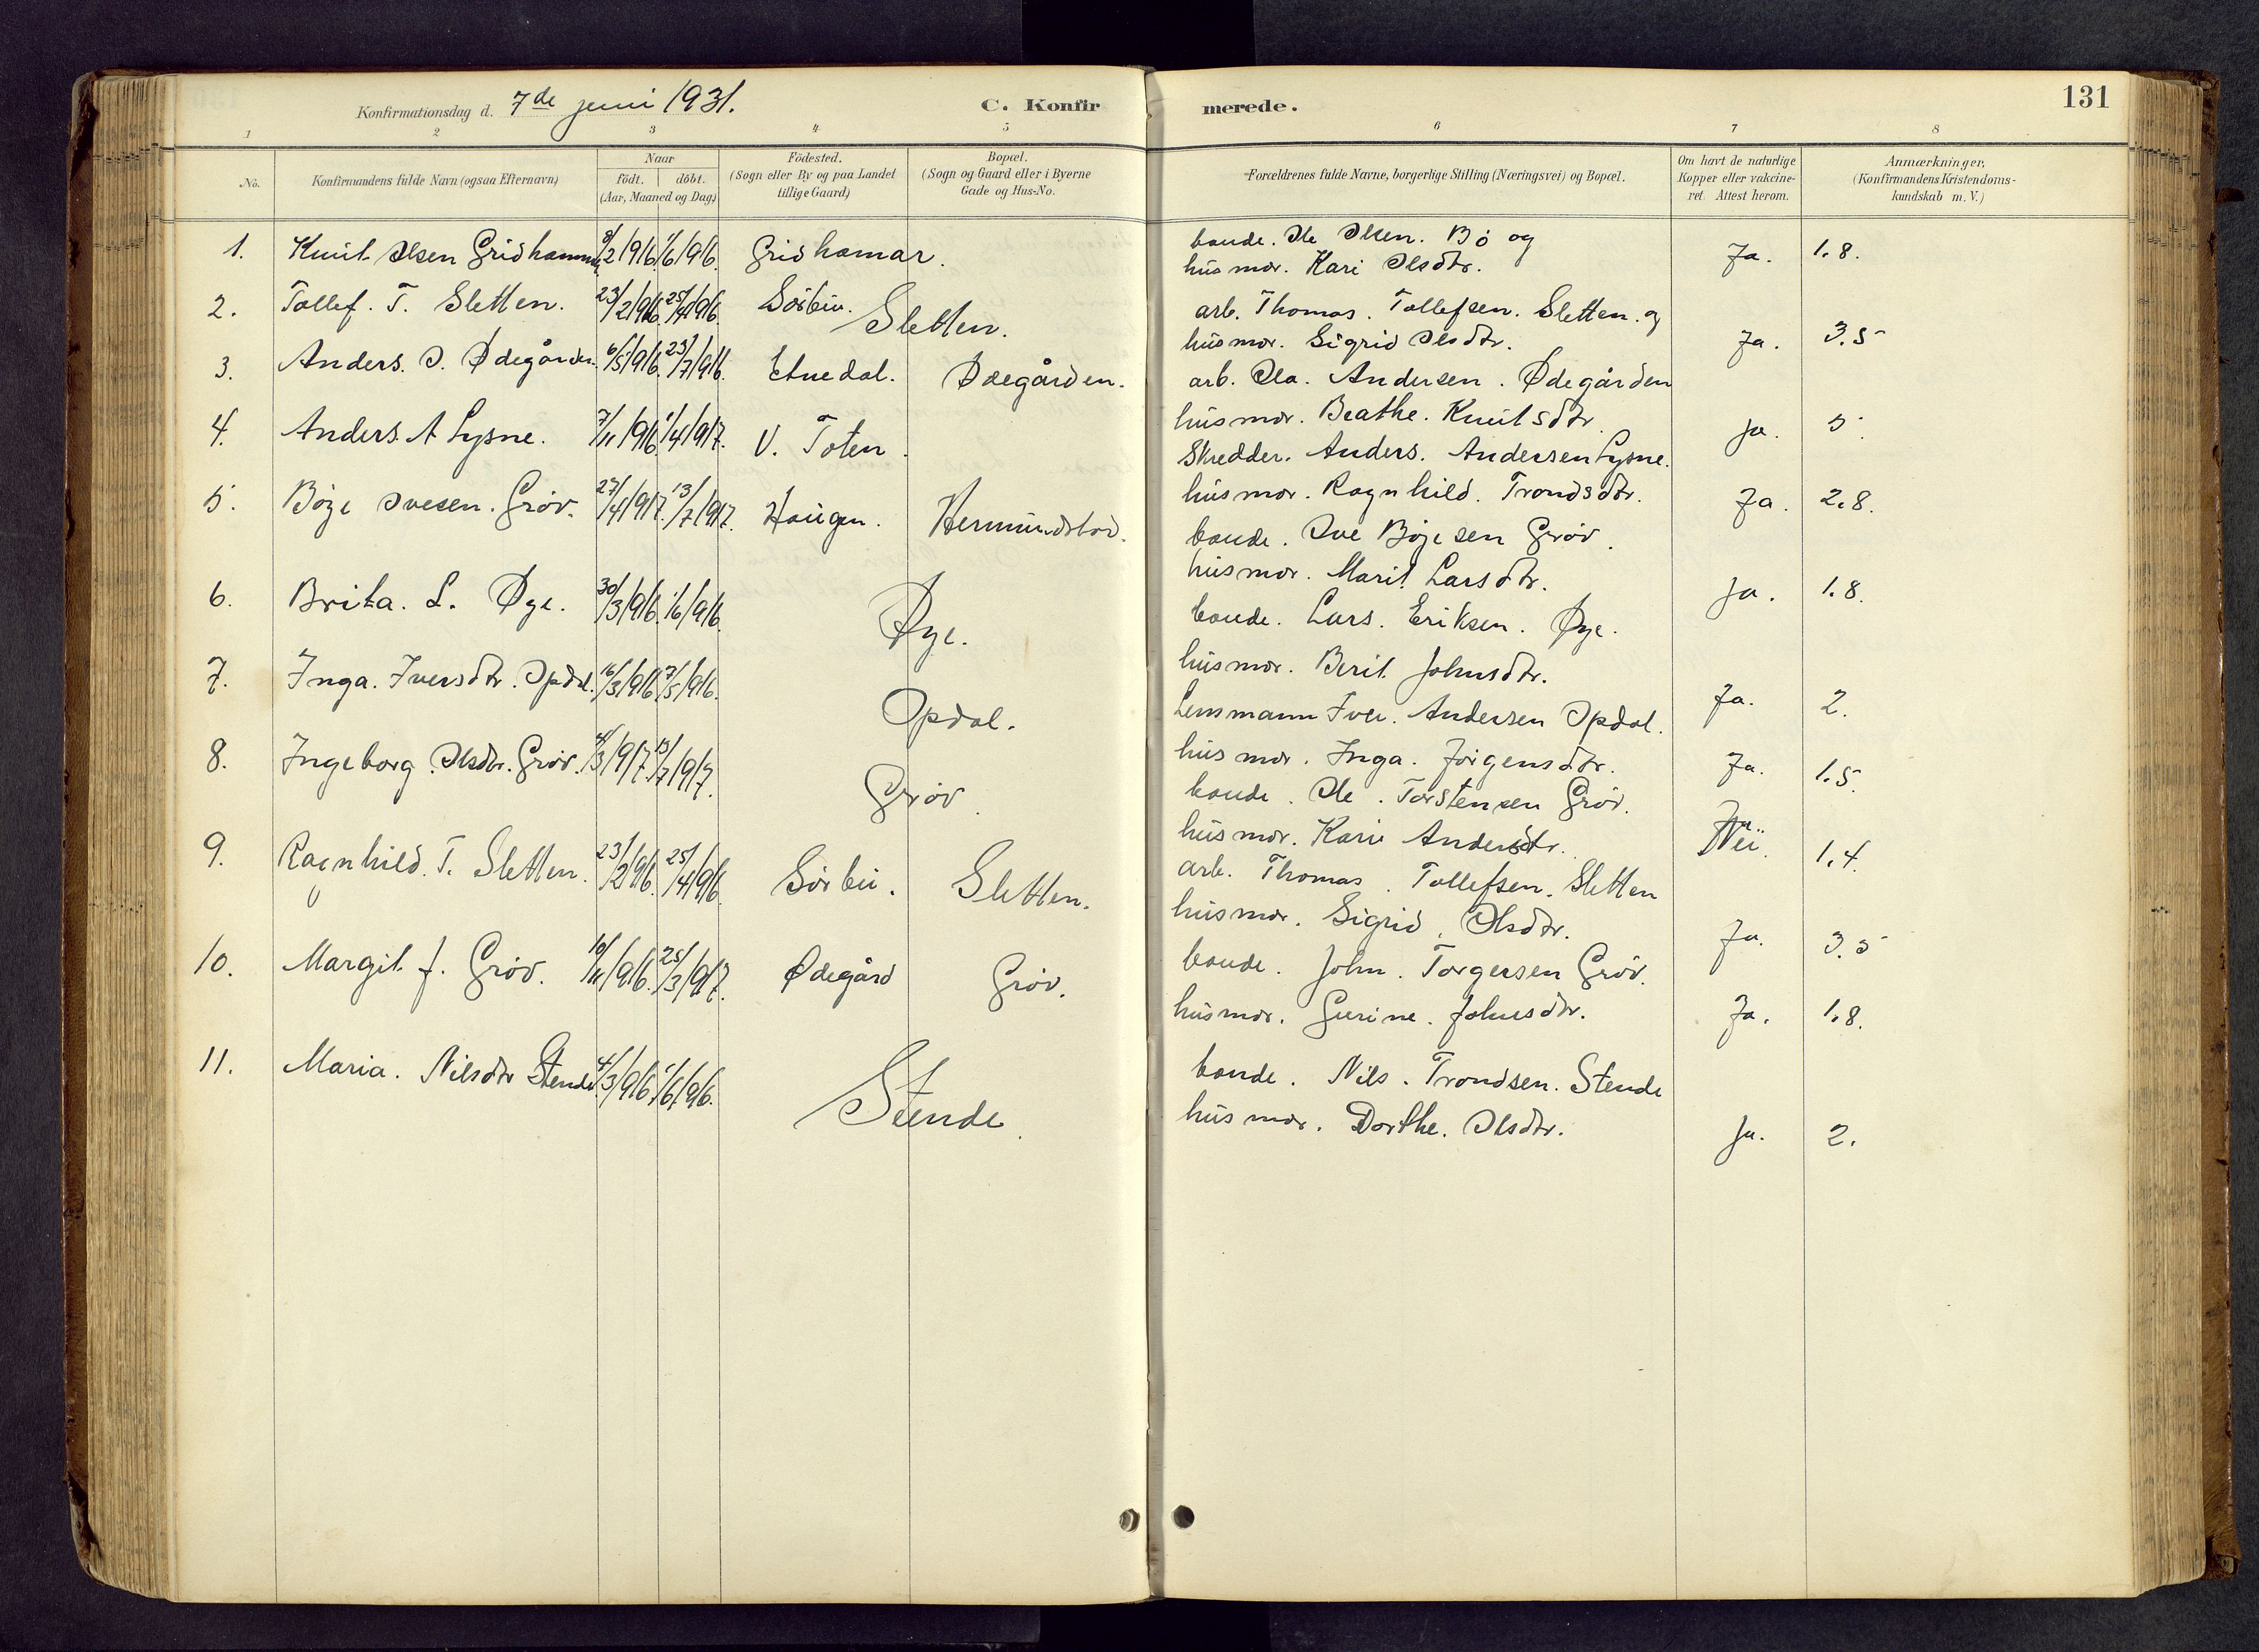 Konfirmationsdag d. 7de juni 1931. C. Konfirmerede. 131
1 2 3 4 5 6 7 8
No. Konfirmandens fulde Navn (ogsaa Efternavn) Naar födt. döbt. (Aar, Maaned og Dag.) Födested. (Sogn eller By og paa Landet tillige Gaard) Bopæl. (Sogn og Gaard eller i Byerne Gade og Hus-No. Forældrenes fulde Navne, borgerlige Stilling (Næringsvei) og Bopæl. Om havt de naturlige Kopper eller vakcineret. Attest herom. Anmærkninger, (Konfirmandens Kristendomskundskab m. V.)
1. Knut Olsen Gridhammer 8/2 1916. 1/6 1916. Gridhamar. bonde. Ole Olsen. Bö og
husmor. Kari Olsdtr. Ja. 1.8.
2. Tollef. T. Sletten. 23/2 1916. 25/4 1916. Sörbu. Sletten. arb. Thomas. Tollefsen. Sletten. og
husmor. Sigrid Olsdtr. Ja. 3.5
3. Anders. O. Ødegården. 6/5 1916. 23/7 1916. Etnedal. Ødegården. arb. Ola. Andersen. Ødegården
husmor. Beathe. Knutsdtr. Ja. 5.
4. Anders. A Lysne. 7/11 1916. 1/4 1917. V. Toten. Skredder. Anders. Andersen Lysne.
husmor. Ragnhild. Trondsdtr. Ja. 2.8.
5. Böje Ovesen. Gröv. 27/4 1917. 13/7 1917. Haugen. Hermundstad. bonde. Ove Böjesen Gröv.
husmor. Marit Larsdtr. Ja. 1.8.
6. Brita. L. Øye. 30/3 1916. 1/6 1916. Øye. bonde. Lars. Eriksen. Øye.
husmor. Berit Johnsdtr. Ja. 2.
7. Inga. Iversdtr. Opdal. 16/3 1916. 7/5 1916. Opdal. Lensmann Iver. Andersen Opdal.
husmor. Inga. Jörgensdtr. Ja. 1.5.
8. Ingeborg. Olsdtr. Gröv. 4/3 1917. 13/7 1917. Gröv. bonde. Ole. Torstensen Gröv.
husmor. Kari Andersdtr. Nei. 1.4.
9. Ragnhild. T. Sletten. 23/2 1916. 25/4 1916. Sörbu. Sletten. arb. Thomas. Tollefsen. Sletten
husmor. Sigrid. Olsdtr. Ja. 3.5
10. Margit J. Gröv. 10/11 1916. 25/3 1917. Ødegård Gröv. bonde. John. Torgersen Gröv.
husmor. Gurine. Johnsdtr. Ja. 1.8.
11. Maria. Nilsdtr Stende 4/3 1916. 1/6 1916. Stende. bonde. Nils. Trondsen. Stende
husmor. Dorthe. Olsdtr. Ja. 2.